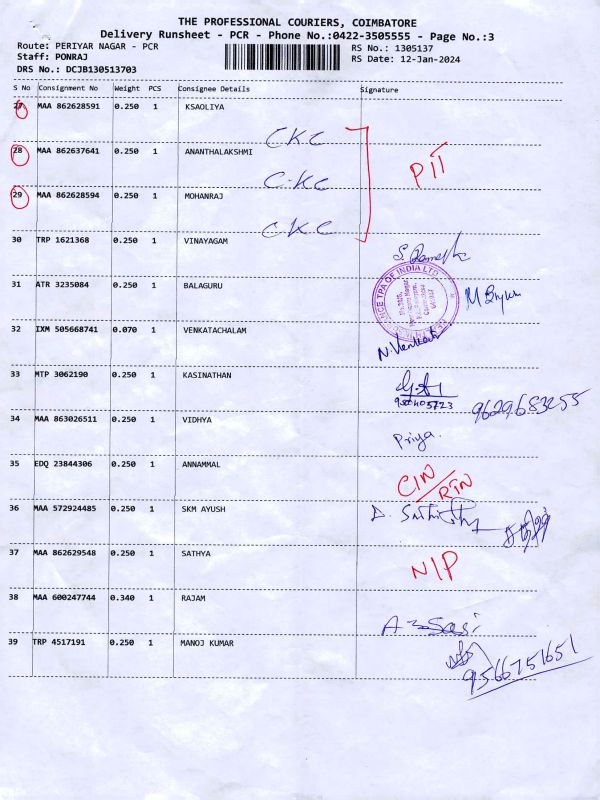 THE PROFESSIONAL COURIERS, COIMBATORE
Delivery Runsheet - PCR - Phone No.:0422-3505555 - Page No.:3
Route: PERIYAR NAGAR - PCR RS No.: 1305137
Staff: PONRAJ RS Date: 12-Jan-2024
DRS No.: DCJB130513703
S No Consignment No Weight PCS Consignee Details Signature
27 MAA 862628591 0.250 1 KSAOLIYA
CKC
28 MAA 862637641 0.250 1 ANANTHALAKSHMI
PIT
C-KC
29 MAA 862628594 0.250 1 MOHANRAJ
CKC
30 TRP 1621368 0.250 1 VINAYAGAM
31 ATR 3235084 0.250 1 BALAGURU
TPA OF INDIA LTD
32 IXM 505668741 0.070 1 VENKATACHALAM
N.Venkat
33 MTP 3062190 0.250 1 KASINATHAN
9629683255
34 MAA 863026511 0.250 1 VIDHYA
Priya.
35 EDQ 23844306 0.250 1 ANNAMMAL
CIN/RTN
36 MAA 572924485 0.250 1 SKM AYUSH
37 MAA 862629548 0.250 1 SATHYA
N/P
38 MAA 600247744 0.340 1 RAJAM
Sasi
39 TRP 4517191 0.250 1 MANOJ KUMAR
9566751651